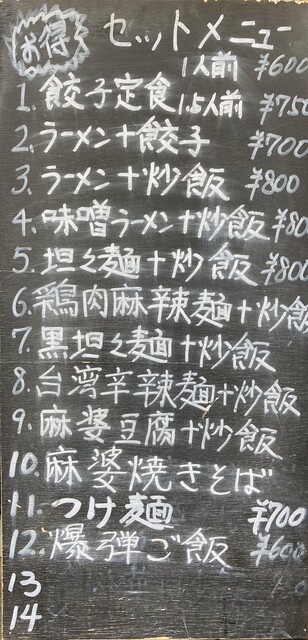 お得 セットメニュー
1人前 ¥600
1. 餃子定食 1.5人前 ¥750
2. ラーメン+餃子 ¥700
3. ラーメン+炒飯 ¥800
4. 味噌ラーメン+炒飯 ¥80
5. 坦々麺+炒飯 ¥800
6. 鶏肉麻辣麺+炒飯
7. 黒坦々麺+炒飯
8. 台湾辛辣麺+炒飯
9. 麻婆豆腐+炒飯
10. 麻婆焼きそば
11. つけ麺 ¥700
12. 爆弾ご飯 ¥600
13
14